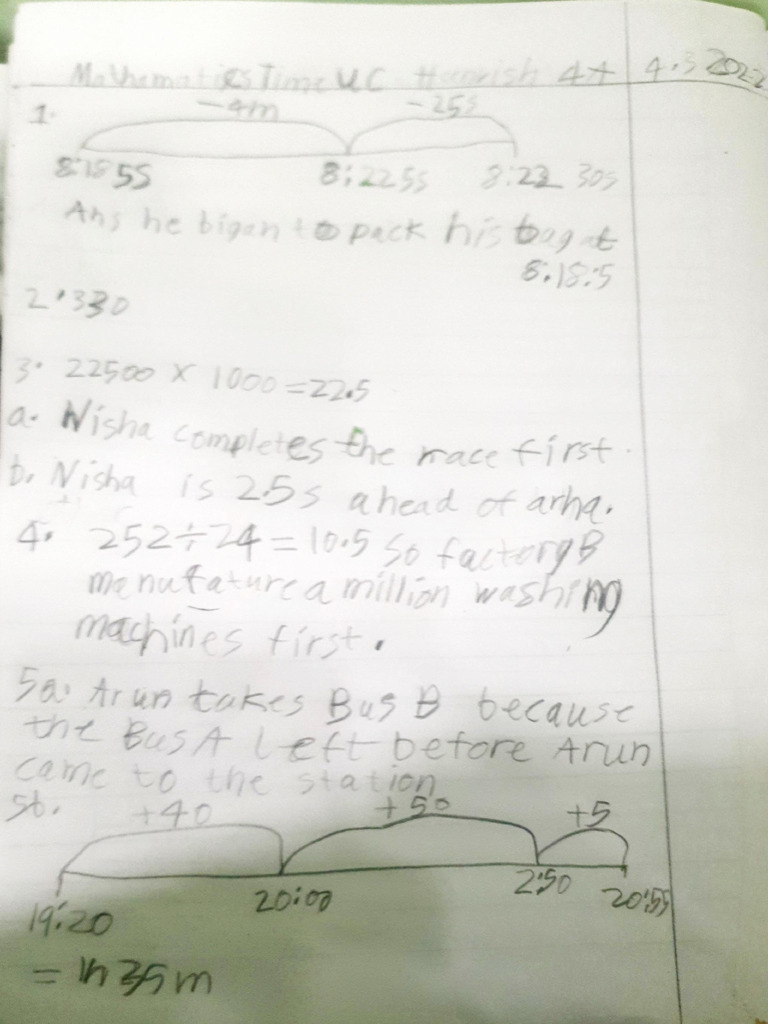 Mathematics Time UC Harrish 4A 4.3 2022
1. -4m -25s
8:18 5s 8:22 5s 8:22 30s
Ans he bigan to pack his bag at
8:18:5
2. 330
3. 22500 × 1000 = 22.5
a. Nisha completes the race first.
b. Nisha is 2.5s ahead of arha.
4. 252 ÷ 24 = 10.5 So factory B
manufature a million washing
machines first.
5a. Arun takes Bus B because
the Bus A left before Arun
came to the station
5b. +40 +50 +5
19:20 20:00 2:50 20:55
= 1h 35m